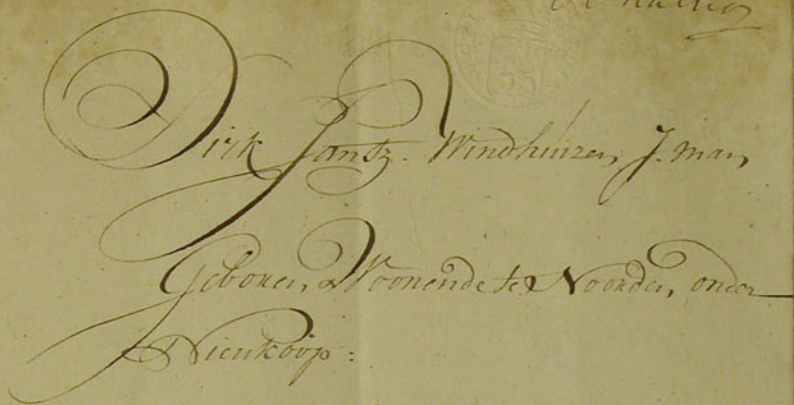 Dirk Jantz. Windhuizen, J. man,
Geboren, Woonende te Noorden, onder
Nieukoop: